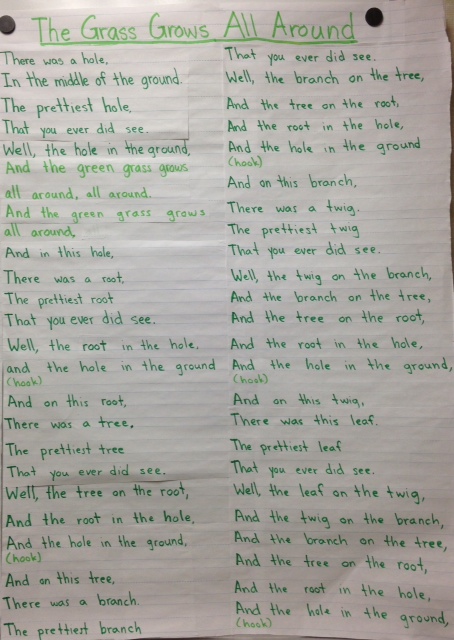 The Grass Grows All Around
There was a hole,
In the middle of the ground.
The prettiest hole,
That you ever did see.
Well, the hole in the ground,
And the green grass grows
all around, all around.
And the green grass grows
all around,
And in this hole,
There was a root,
The prettiest root
That you ever did see.
Well, the root in the hole,
and the hole in the ground
(hook)
And on this root,
There was a tree,
The prettiest tree
That you ever did see.
Well, the tree on the root,
And the root in the hole,
And the hole in the ground,
(hook)
And on this tree,
There was a branch.
The prettiest branch
That you ever did see.
Well, the branch on the tree,
And the tree on the root,
And the root in the hole,
And the hole in the ground
(hook)
And on this branch,
There was a twig.
The prettiest twig
That you ever did see.
Well, the twig on the branch,
And the branch on the tree,
And the tree on the root,
And the root in the hole,
And the hole in the ground,
(hook)
And on this twig,
There was this leaf.
The prettiest leaf
That you ever did see.
Well, the leaf on the twig,
And the twig on the branch,
And the branch on the tree,
And the tree on the root,
And the root in the hole,
And the hole in the ground,
(hook)